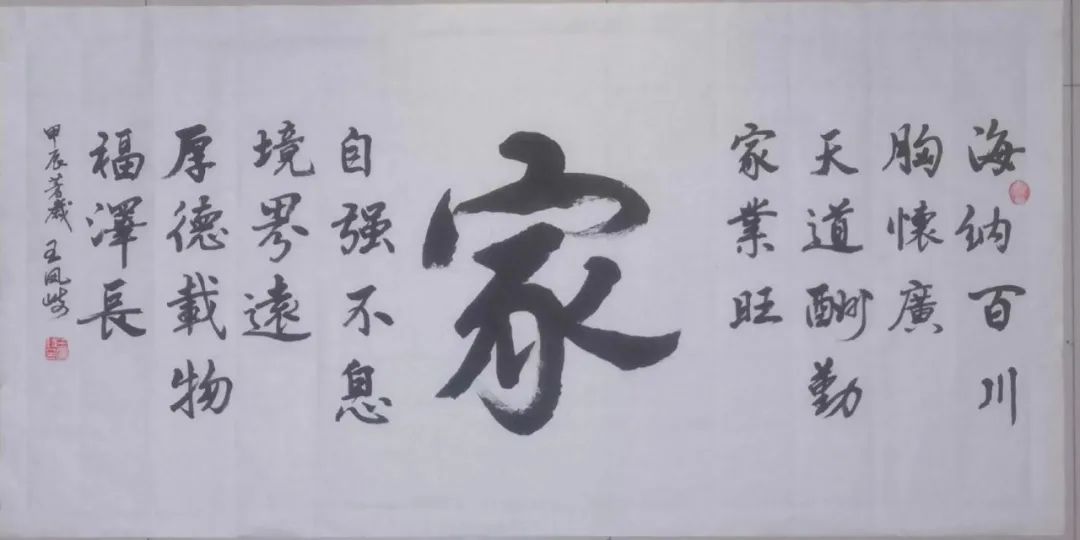 海納百川
胸懷廣
天道酬勤
家業旺
家
自强不息
境界遠
厚德載物
福澤長
甲辰菩歲 王鳳岐